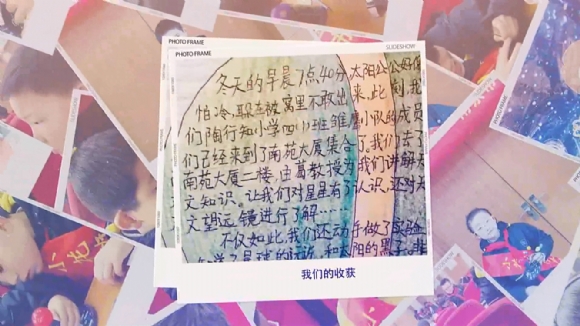 PHOTO FRAME
SLIDESHOW
PHOTO FRAME
冬天的早晨7点40分,太阳公公好像
怕冷,躲在被窝里不敢出来,此刻,我
们陶行知小学四(1)班雏鹰小队的成员
们已经来到了南苑大厦集合了。我们去了
南苑大厦二楼,由葛教授为我们讲解天
文知识。让我们对星星有了认识,还对天
文望远镜进行了解……
不仅如此,我们还动手做了实验
和太阳的黑子。
我们的收获